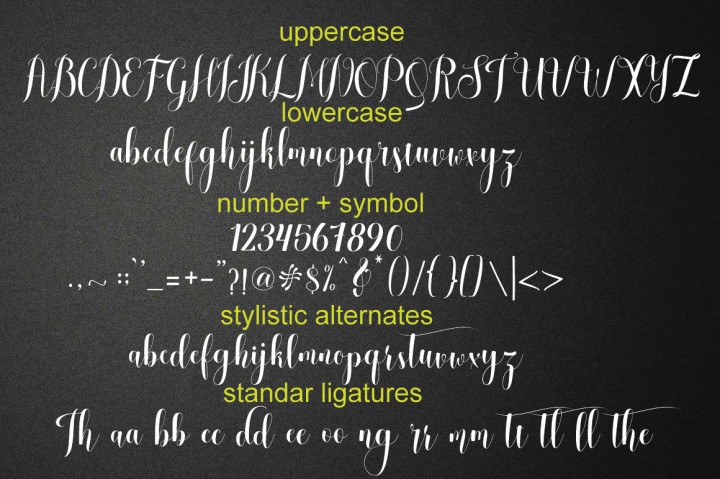 uppercase
ABCDEFGHIJKLMNOPQRSTUVWXYZ
lowercase
abcdefghijklmnopqrstuvwxyz
number + symbol
1234567890
.,~ :;`'_=+-"?!@#$%^&*()/{}[]\|<>
stylistic alternates
abcdefghijklmnopqrstuvwxyz
standar ligatures
Th aa bb cc dd ee oo ng rr mm tt tl ll the